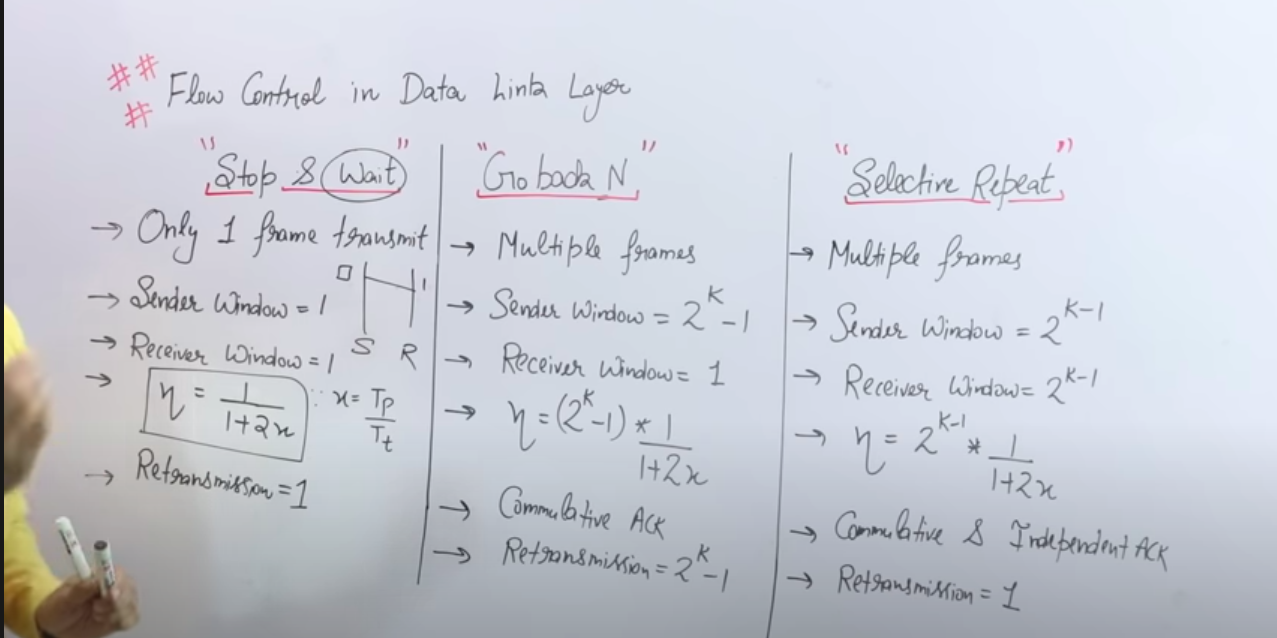 ## Flow Control in Data Link Layer
#
"Stop & Wait"
→ Only 1 frame transmit
→ Sender Window = 1
→ Receiver Window = 1
S R
→ η = 1/(1+2x) ∵ x = Tp/Tt
→ Retransmission = 1
"Go back N"
→ Multiple frames
→ Sender Window = 2^K - 1
→ Receiver Window = 1
→ η = (2^K - 1) * 1/(1+2x)
→ Commulative ACK
→ Retransmission = 2^K - 1
"Selective Repeat"
→ Multiple frames
→ Sender Window = 2^(K-1)
→ Receiver Window = 2^(K-1)
→ η = 2^(K-1) * 1/(1+2x)
→ Commulative & Independent ACK
→ Retransmission = 1